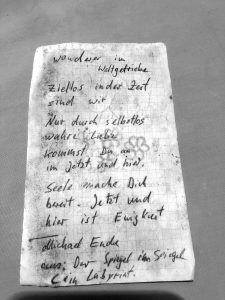 Wanderer im
Weltgetriebe
Ziellos in der Zeit
sind wir
Nur durch selbstlos
wahre Liebe
kommst Du an
im Jetzt und hier.
Seele mache Dich
bereit. Jetzt und
hier ist Ewigkeit
Michael Ende
aus: Der Spiegel im Spiegel
Labyrint.